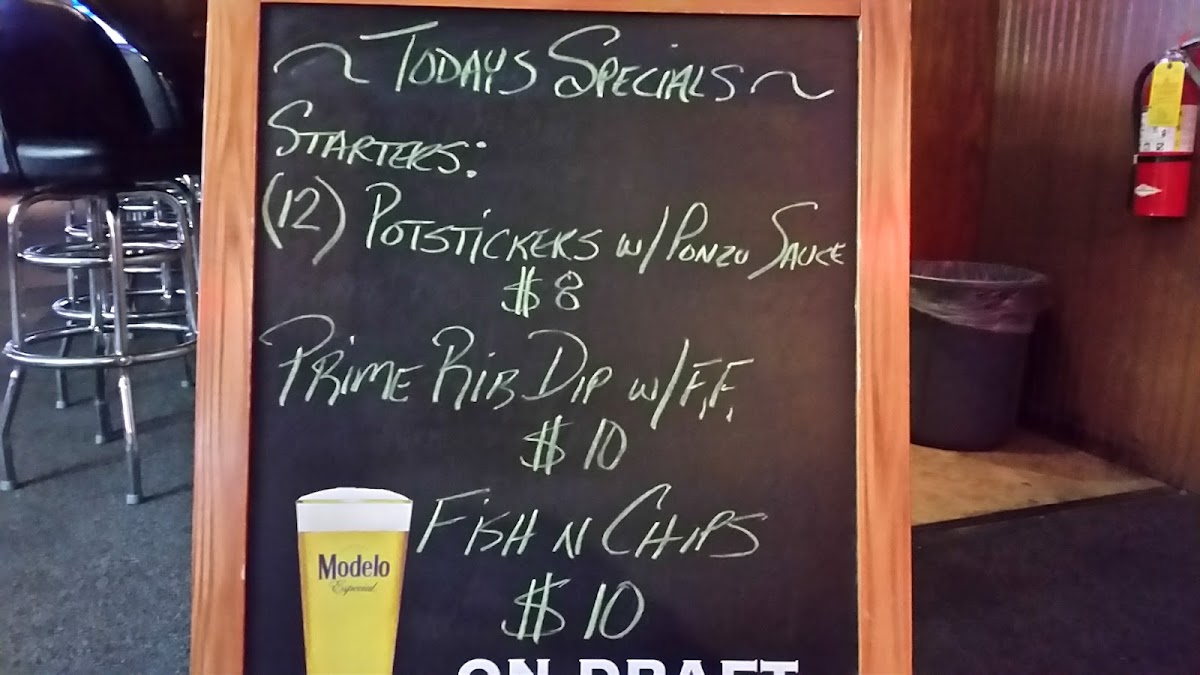 ~ TODAYS SPECIALS ~
STARTERS:
(12) POTSTICKERS W/ PONZU SAUCE
$8
PRIME RIB DIP W/ F.F.
$10
FISH N CHIPS
$10
Modelo
Especial
ON DRAFT